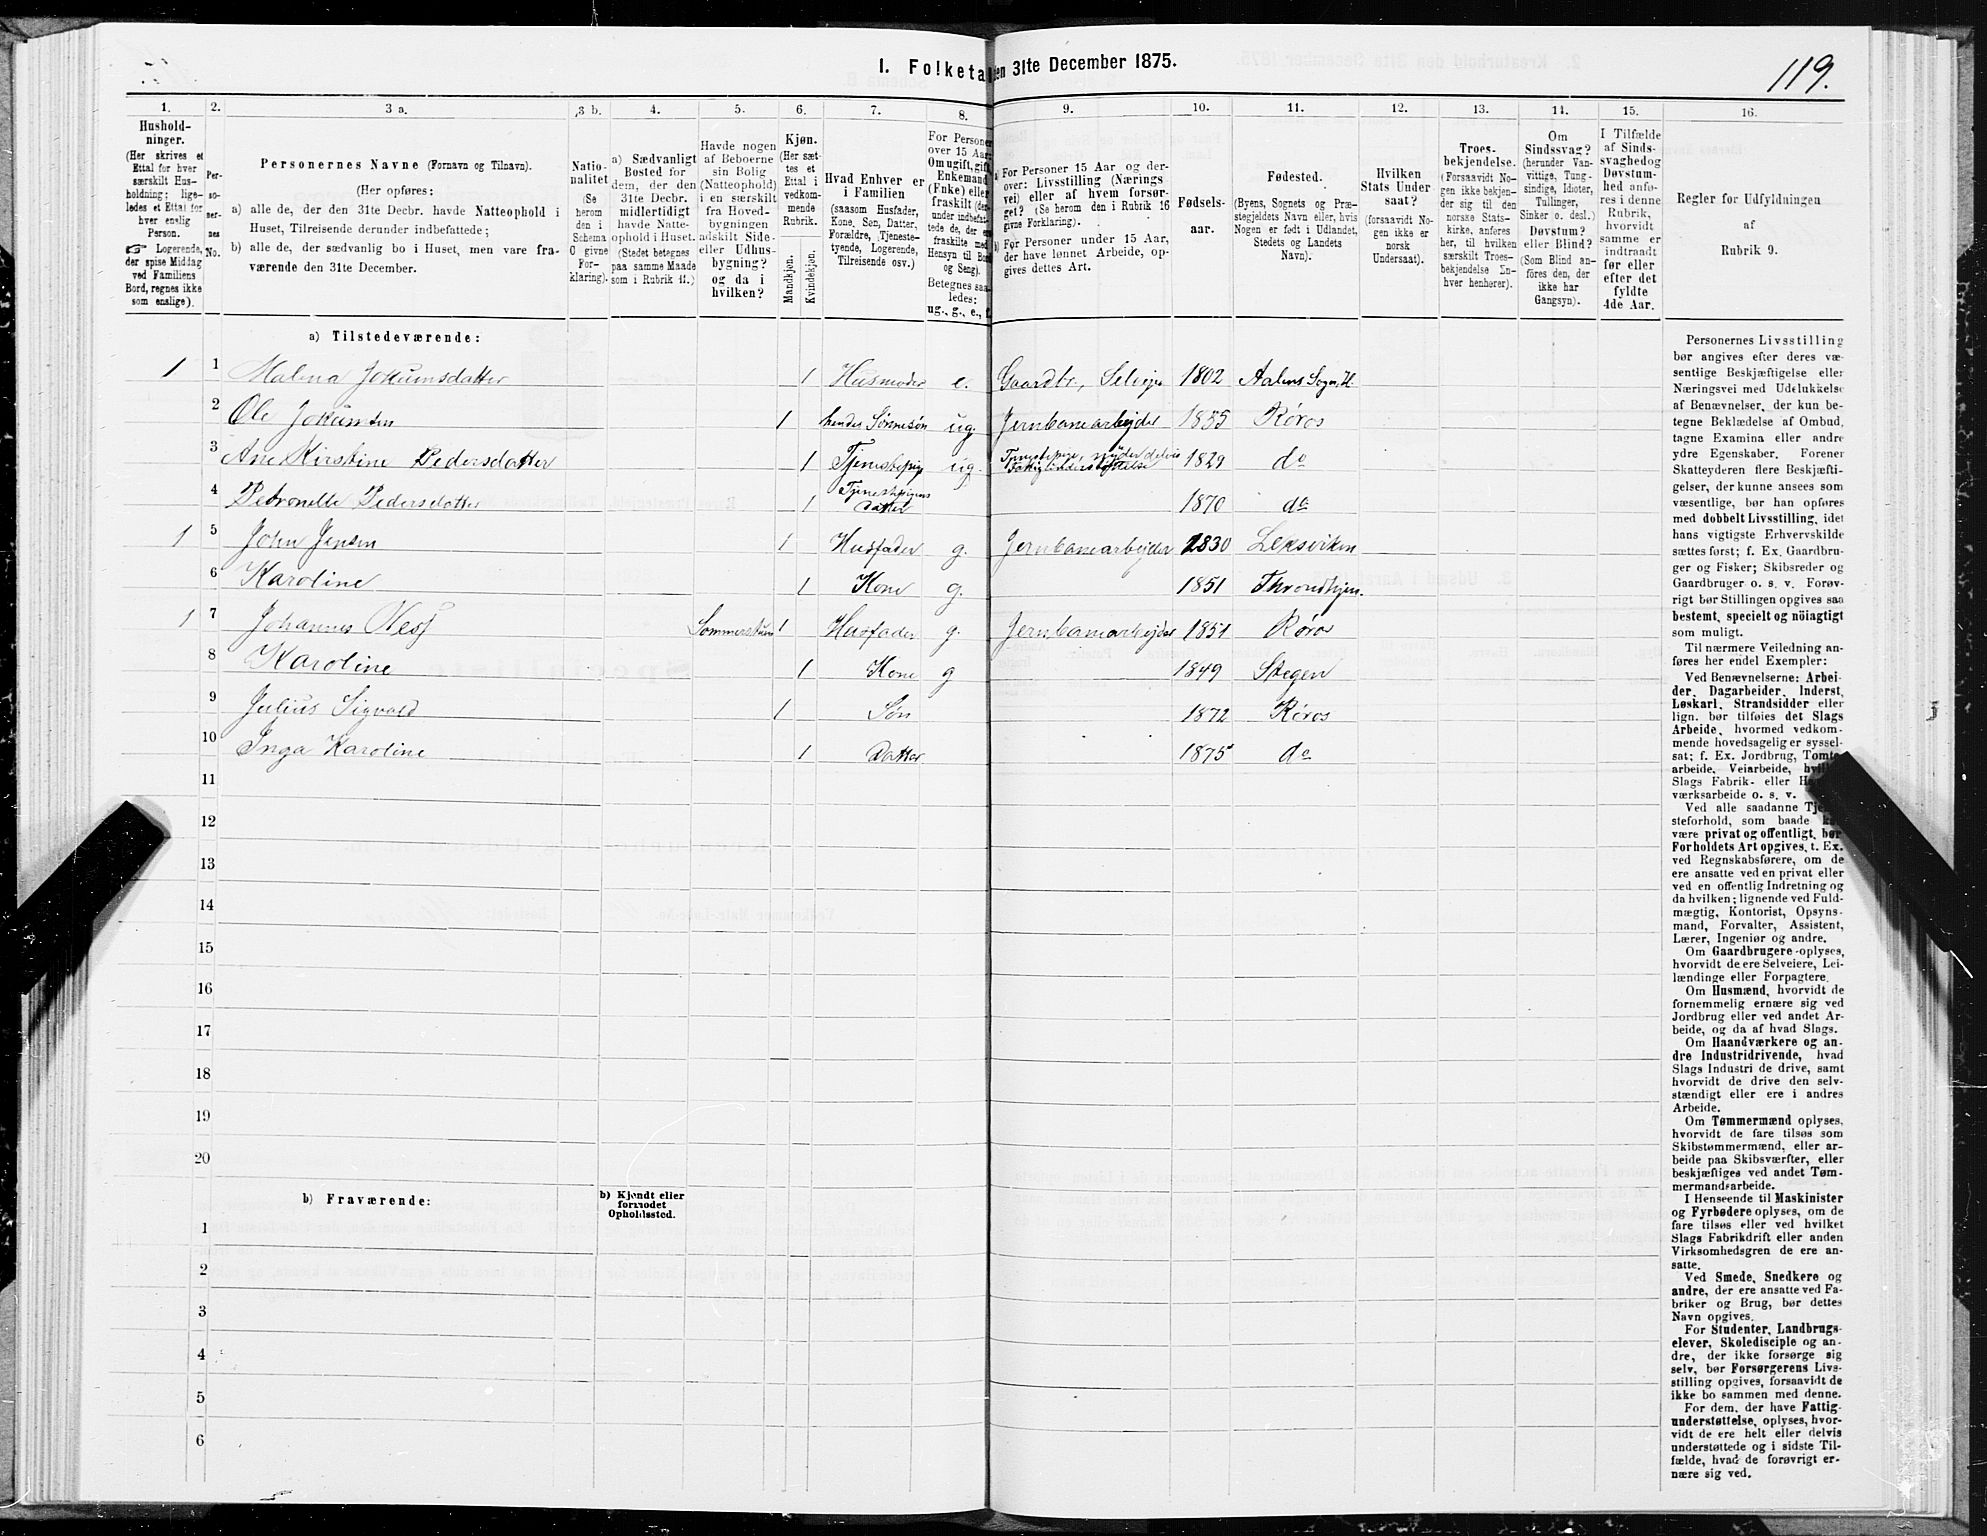 I. Folketæ
en 31te December 1875.
119.
1.
2.
3 a.
3 b.
4.
5.
6.
7.
8.
9.
10.
11.
12.
13.
14.
15.
16.
Hushold-
ninger.
(Her skrives et
Ettal for hver
særskilt Hus-
holdning; lige-
ledes et Ettal for
hver enslig
Person.
☞ Logerende,
der spise Middag
ved Familiens
Bord, regnes ikke
som enslige).
Per-
so-
ner-
nes
No.
Personernes Navne (Fornavn og Tilnavn).
(Her opføres:
a) alle de, der den 31te Decbr. havde Natteophold i
Huset, Tilreisende derunder indbefattede;
b) alle de, der sædvanlig bo i Huset, men vare fra-
værende den 31te December.
Natio-
nalitet
(Se
herom
den i
Schema
O givne
For-
klaring).
a) Sædvanligt
Bosted for
dem, der den
31te Decbr.
midlertidigt
havde Natte-
ophold i Huset.
(Stedet betegnes
paa samme Maade
som i Rubrik 11.)
Havde nogen
af Beboerne
sin Bolig
(Natteophold)
i en særskilt
fra Hoved-
bygningen
adskilt Side-
eller Udhus-
bygning?
og da i
hvilken?
Kjøn.
(Her sæt-
tes et
Ettal i
vedkom-
mende
Rubrik.
Mandkjøn.
Kvindekjøn.
Hvad Enhver er
i Familien
(saasom Husfader,
Kone, Søn, Datter,
Forældre, Tjeneste-
tyende, Logerende,
Tilreisende osv.)
For Personer
over 15 Aar:
Om ugift, gift,
Enkemand
(Enke) eller
fraskilt (der-
under indbefat-
tede de, der ere
fraskilte med
Hensyn til Bord
og Seng).
Betegnes saa-
ledes:
ug., g., e., f.
a) For Personer 15 Aar og der-
over: Livsstilling (Nærings-
vei) eller af hvem forsør-
get? (Se herom den i Rubrik 16
givne Forklaring).
b) For Personer under 15 Aar,
der have lønnet Arbeide, op-
gives dettes Art.
Fødsels-
aar.
Fødested.
(Byens, Sognets og Præ-
stegjeldets Navn eller, hvis
Nogen er født i Udlandet,
Stedets og Landets
Navn).
Hvilken
Stats Under-
saat?
(forsaavidt No-
gen ikke er
norsk
Undersaat).
Troes-
bekjendelse.
(Forsaavidt No-
gen ikke bekjen-
der sig til den
norske Stats-
kirke, anføres
her, til hvilken
særskilt Troes-
bekjendelse En-
hver henhører).
Om
Sindssvag?
(herunder Van-
vittige, Tung-
sindige, Idioter,
Tullinger,
Sinker o. desl.)
Døvstum?
eller Blind?
(Som Blind an-
føres den, der
ikke har
Gangsyn).
I Tilfælde
af Sinds-
svaghed og
Døvstum-
hed anfø-
res i denne
Rubrik,
hvorvidt
samme er
indtraadt
før eller
efter det
fyldte
4de Aar.
Regler for Udfyldningen
af
Rubrik 9.
a) Tilstedeværende:
1 1 Malena Jokumsdatter 1 Husmoder e. Gaardbr, Selveje 1802 Aalens Sogn, H.
2 Ole Jokumsen 1 hendes Sønnesøn ug. Jernbanearbejder 1855 Røros
3 Ane Kirstine Pedersdatter 1 Tjenestepige ug. Tjenestepige, nyder delvis Fattigunderstøttelse 1829 do
4 Petronelle Pedersdatter 1 Tjenestepigens Datter 1870 do
1 5 John Jensen 1 Husfader g. Jernbanearbejder 1830 Leksviken
6 Karoline 1 Kone g. 1851 Throndhjem.
1 7 Johannes Næsj Sommerstuen 1 Husfader g. Jernbanearbejder 1851 Røros
8 Karoline 1 Kone g 1849 Stegen
9 Julius Sigvald 1 Søn 1872 Røros
10 Inga Karoline 1 Datter 1875 do
11
12
13
14
15
16
17
18
19
20
b) Fraværende:
b) Kjendt eller
formodet
Opholdssted.
1
2
3
4
5
6
Personernes Livsstilling
bør angives efter deres væ-
sentlige Beskjæftigelse eller
Næringsvei med Udelukkelse
af Benævnelser, der kun be-
tegne Beklædelse af Ombud,
tagne Examina eller andre
ydre Egenskaber. Forener
Skatteyderen flere Beskjæfti-
gelser, der kunne ansees som
væsentlige, bør han opføres
med dobbelt Livsstilling, idet
hans vigtigste Erhvervskilde
sættes først; f. Ex. Gaardbru-
ger og Fisker; Skibsreder og
Gaardbruger o. s. v. Forøv-
rigt bør Stillingen opgives saa
bestemt, specielt og nöiagtigt
som muligt.
Til nærmere Veiledning an-
føres her endel Exempler:
Ved Benævnelserne: Arbei-
der, Dagarbeider, Inderst,
Løskarl, Strandsidder eller
lign. bør tilføies det Slags
Arbeide, hvormed vedkom-
mende hovedsagelig er syssel-
sat; f. Ex. Jordbrug, Tomte-
arbeide, Veiarbeide, hvilket
Slags Fabrik- eller Haand-
værksarbeide o. s. v.
Ved alle saadanne Tjene-
steforhold, som baade kan
være privat og offentligt, bør
Forholdets Art opgives, t. Ex.
ved Regnskabsførere, om de
ere ansatte ved en privat eller
ved en offentlig Indretning og
da hvilken; lignende ved Fuld-
mægtig, Kontorist, Opsyns-
mand, Forvalter, Assistent,
Lærer, Ingeniør og andre.
Om Gaardbrugere oplyses,
hvorvidt de ere Selveiere, Lei-
lændinge eller Forpagtere.
Om Husmænd, hvorvidt de
fornemmelig ernære sig ved
Jordbrug eller ved andet Ar-
beide, og da af hvad Slags.
Om Haandværkere og an-
dre Industridrivende, hvad
Slags Industri de drive, samt
hvorvidt de drive den selv-
stændigt eller ere i andres
Arbeide.
Om Tømmermænd oplyses,
hvorvidt de fare tilsøs som
Skibstømmermænd, eller ar-
beide paa Skibsværfter, eller
beskjæftiges ved andet Tøm-
mermandsarbeide.
I Henseende til Maskinister
og Fyrbødere oplyses, om de
fare tilsøs eller ved hvilket
Slags Fabrikdrift eller anden
Virksomhedsgren de ere an-
satte.
Ved Smede, Snedkere og
andre, der ere ansatte ved Fa-
briker og Brug, bør dettes
Navn opgives.
For Studenter, Landbrugs-
elever, Skoledisciple og an-
dre, der ikke forsørge sig
selv, bør Forsørgerens Livs-
stilling opgives, forsaavidt de
ikke bo sammen med denne.
For dem, der have Fattig-
understøttelse, oplyses, hvor-
vidt de ere helt eller delvis
understøttede og i sidste Til-
fælde, hvad de forøvrigt er-
nære sig ved.